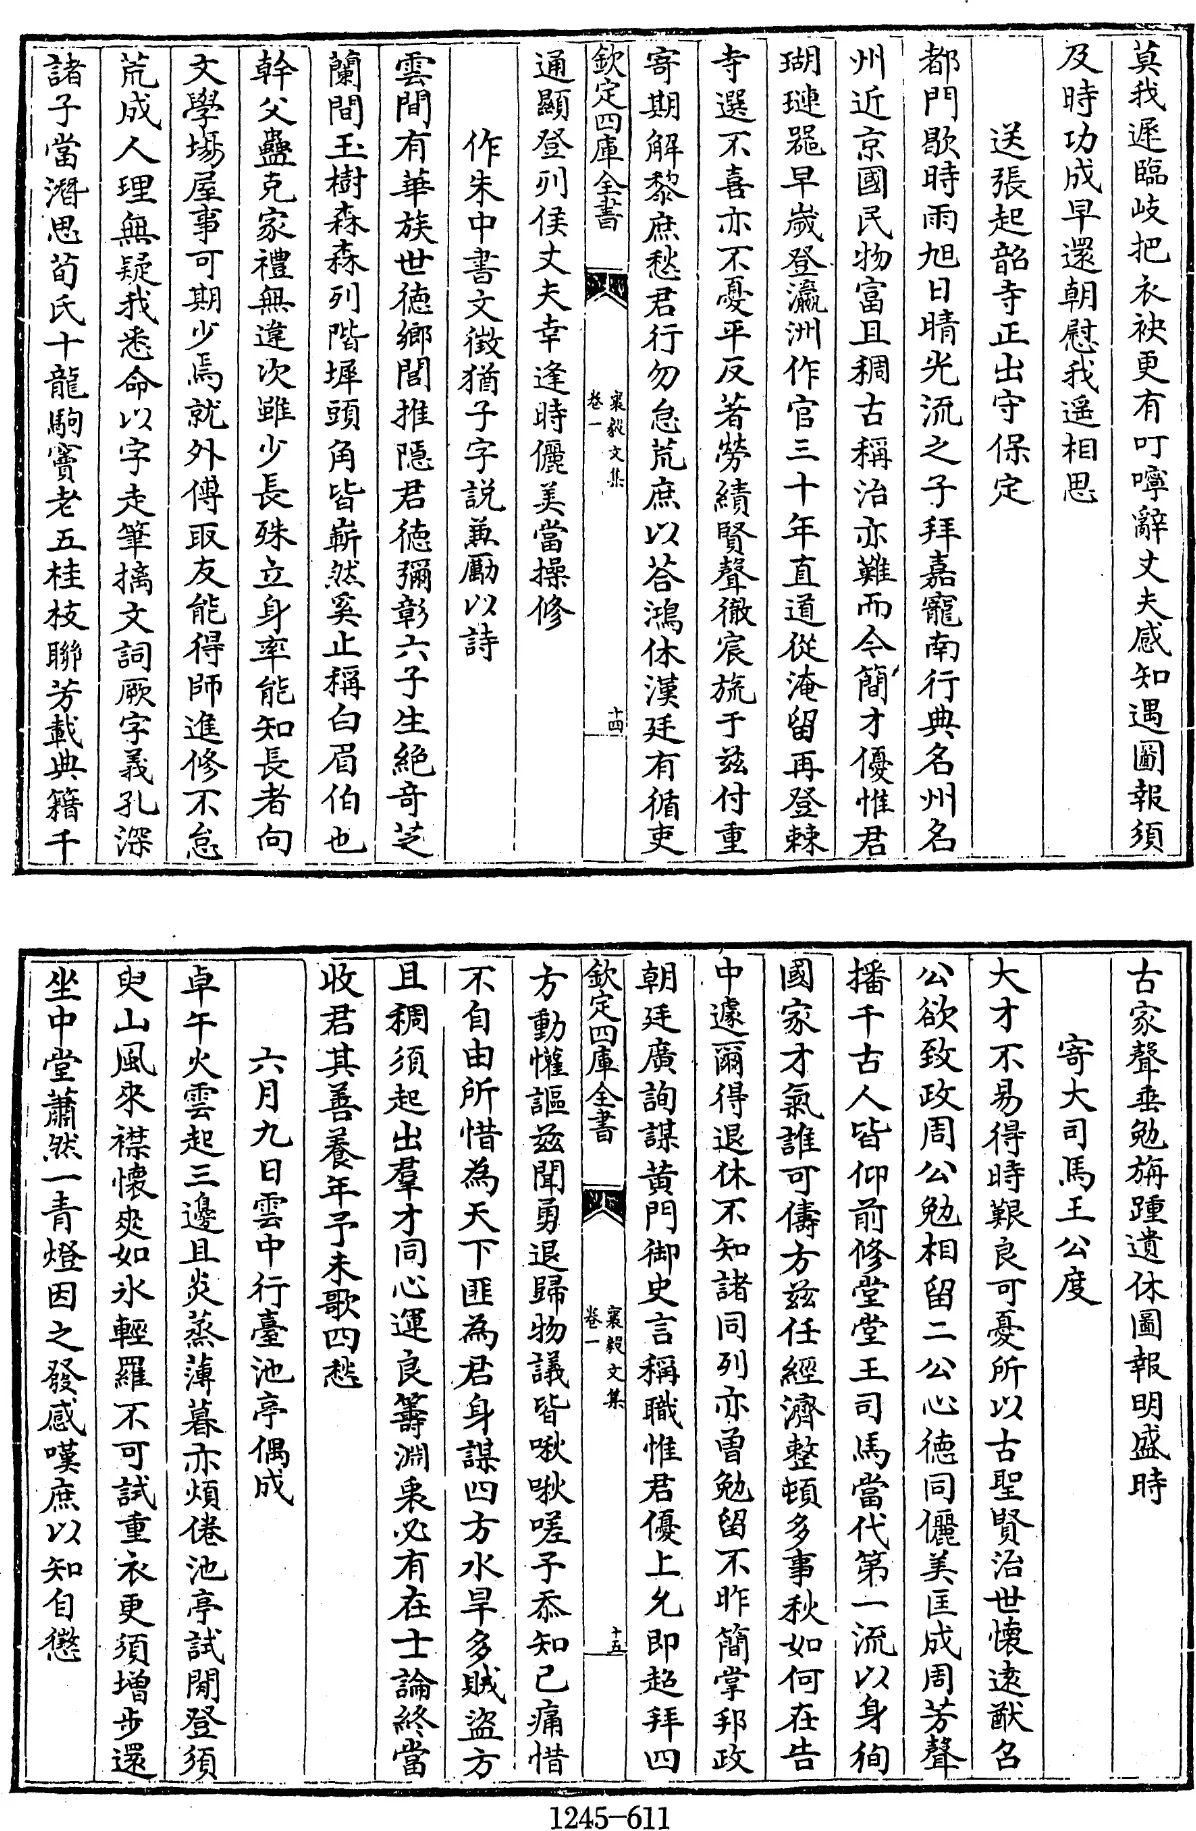 莫我遲臨歧把衣袂更有叮嚀辭丈夫感知遇圖報須
及時功成早還朝慰我遥相思
送張起韶寺正出守保定
都門歇時雨旭日晴光流之子拜嘉寵南行典名州名
州近京國民物富且稠古稱治亦難而今簡才優惟君
瑚璉噐早歲登瀛洲作官三十年直道從淹留再登棘
寺選不喜亦不憂平反著勞績賢聲徹宸旒于兹付重
寄期解黎庶愁君行勿怠荒庶以答鴻休漢廷有循吏
欽定四庫全書
襄毅文集
卷一
十四
通顯登列侯丈夫幸逢時儷美當操修
作朱中書文徵猶子字説兼勵以詩
雲間有華族世徳鄉閭推隠君徳彌彰六子生絶奇芝
蘭間玉樹森森列階墀頭角皆嶄然奚止稱白眉伯也
幹父蠱克家禮無違次雖少長殊立身率能知長者向
文學場屋事可期少焉就外傅取友能得師進修不怠
荒成人理無疑我悉命以字走筆摛文詞厥字義孔深
諸子當潛思荀氏十龍駒竇老五桂枝聯芳載典籍千
古家聲垂勉旃踵遺休圖報明盛時
寄大司馬王公度
大才不易得時艱良可憂所以古聖賢治世懷逺猷召
公欲致政周公勉相留二公心徳同儷美匡成周芳聲
播千古人皆仰前修堂堂王司馬當代第一流以身徇
國家才氣誰可儔方兹任經濟整頓多事秋如何在告
中遽爾得退休不知諸同列亦曽勉留不昨簡掌邦政
朝廷廣詢謀黄門御史言稱職惟君優上允即超拜四
欽定四庫全書
襄毅文集
卷一
十五
方動懽謳兹聞勇退歸物議皆啾啾嗟子忝知己痛惜
不自由所惜為天下匪為君身謀四方水旱多賊盗方
且稠須起出羣才同心運良籌淵衷必有在士論終當
收君其善養年予未歌四愁
六月九日雲中行臺池亭偶成
卓午火雲起三邊且炎蒸薄暮亦煩倦池亭試閒登須
臾山風來襟懷爽如氷輕羅不可試重衣更須增步還
坐中堂蕭然一青燈因之發感嘆庶以知自懲
1245-611